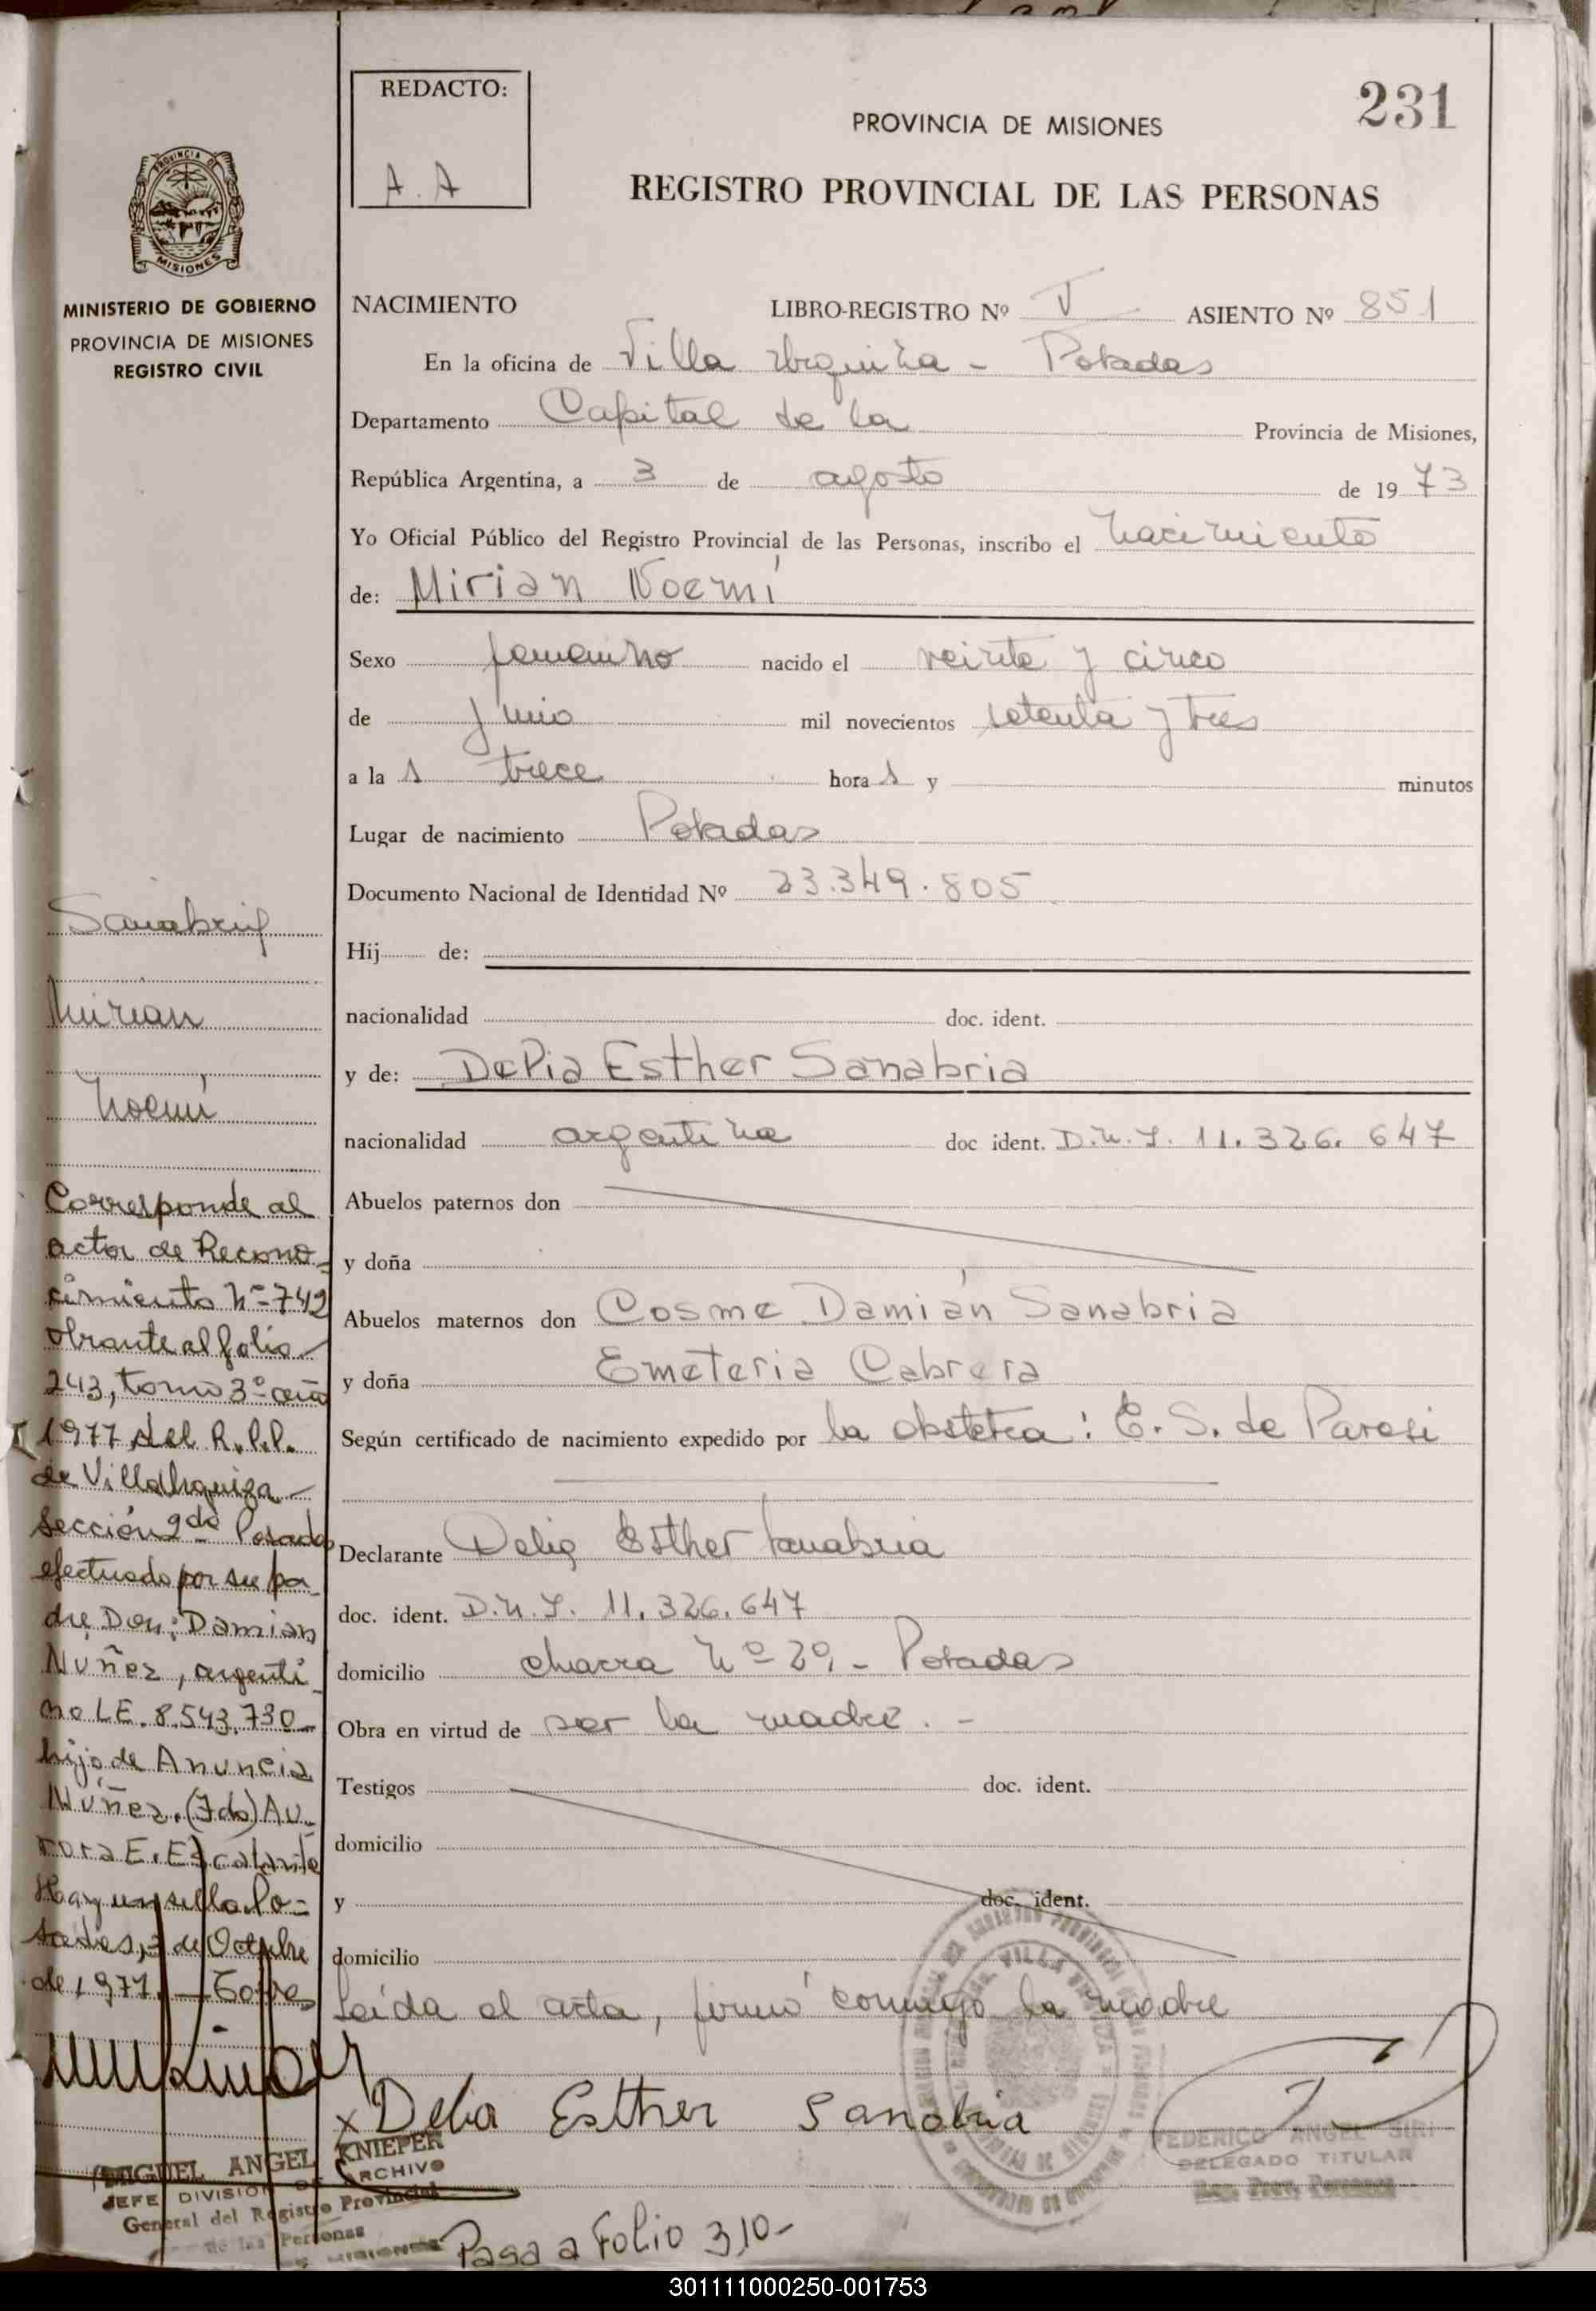 231
REDACTO:
A. A
PROVINCIA DE MISIONES
REGISTRO PROVINCIAL DE LAS PERSONAS
PROVINCIA DE
MISIONES
MINISTERIO DE GOBIERNO
PROVINCIA DE MISIONES
REGISTRO CIVIL
NACIMIENTO LIBRO-REGISTRO Nº V ASIENTO Nº 851
En la oficina de Villa Urquiza - Posadas
Departamento Capital de la Provincia de Misiones,
República Argentina, a 3 de agosto de 1973
Yo Oficial Público del Registro Provincial de las Personas, inscribo el nacimiento
de: Mirian Noemí
Sexo femenino nacido el veinte y cinco
de junio mil novecientos setenta y tres
a la s trece hora s y minutos
Lugar de nacimiento Posadas
Documento Nacional de Identidad Nº 23.349.805
Hij de:
nacionalidad doc. ident.
y de: Delia Esther Sanabria
nacionalidad argentina doc ident. D.N.I. 11.326.647
Abuelos paternos don
y doña
Abuelos maternos don Cosme Damián Sanabria
y doña Emeteria Cabrera
Según certificado de nacimiento expedido por la obstetra: E. S. de Paresi
Declarante Delia Esther Sanabria
doc. ident. D.N.I. 11.326.647
domicilio chacra Nº 29 - Posadas
Obra en virtud de ser la madre. -
Testigos doc. ident.
domicilio
y doc. ident.
domicilio
Leída el acta, firmó conmigo la madre
x Delia Esther Sanabria
FEDERICO ANGEL SIRI
DELEGADO TITULAR
Reg. Prov. Personas
VILLA URQUIZA
Sanabria
Mirian
Noemí
Corresponde al
acta de Recono-
cimiento Nº 742
obrante al folio
243, tomo 3º año
1977 del R.P.P.
de Villa Urquiza -
Sección 2da Posadas
efectuado por su pa-
dre Don: Damian
Núñez, argenti-
no L.E. 8.543.730 -
hijo de Anuncia
Núñez. (Fdo) Au-
rora E. Escalante
Hay un sello Po-
sadas, 3 de Octubre
de 1977. - Torres
MIGUEL ANGEL KNIEPER
JEFE DIVISION DE ARCHIVO
General del Registro Provincial
de las Personas
MISIONES
Pasa a Folio 310-
301111000250-001753